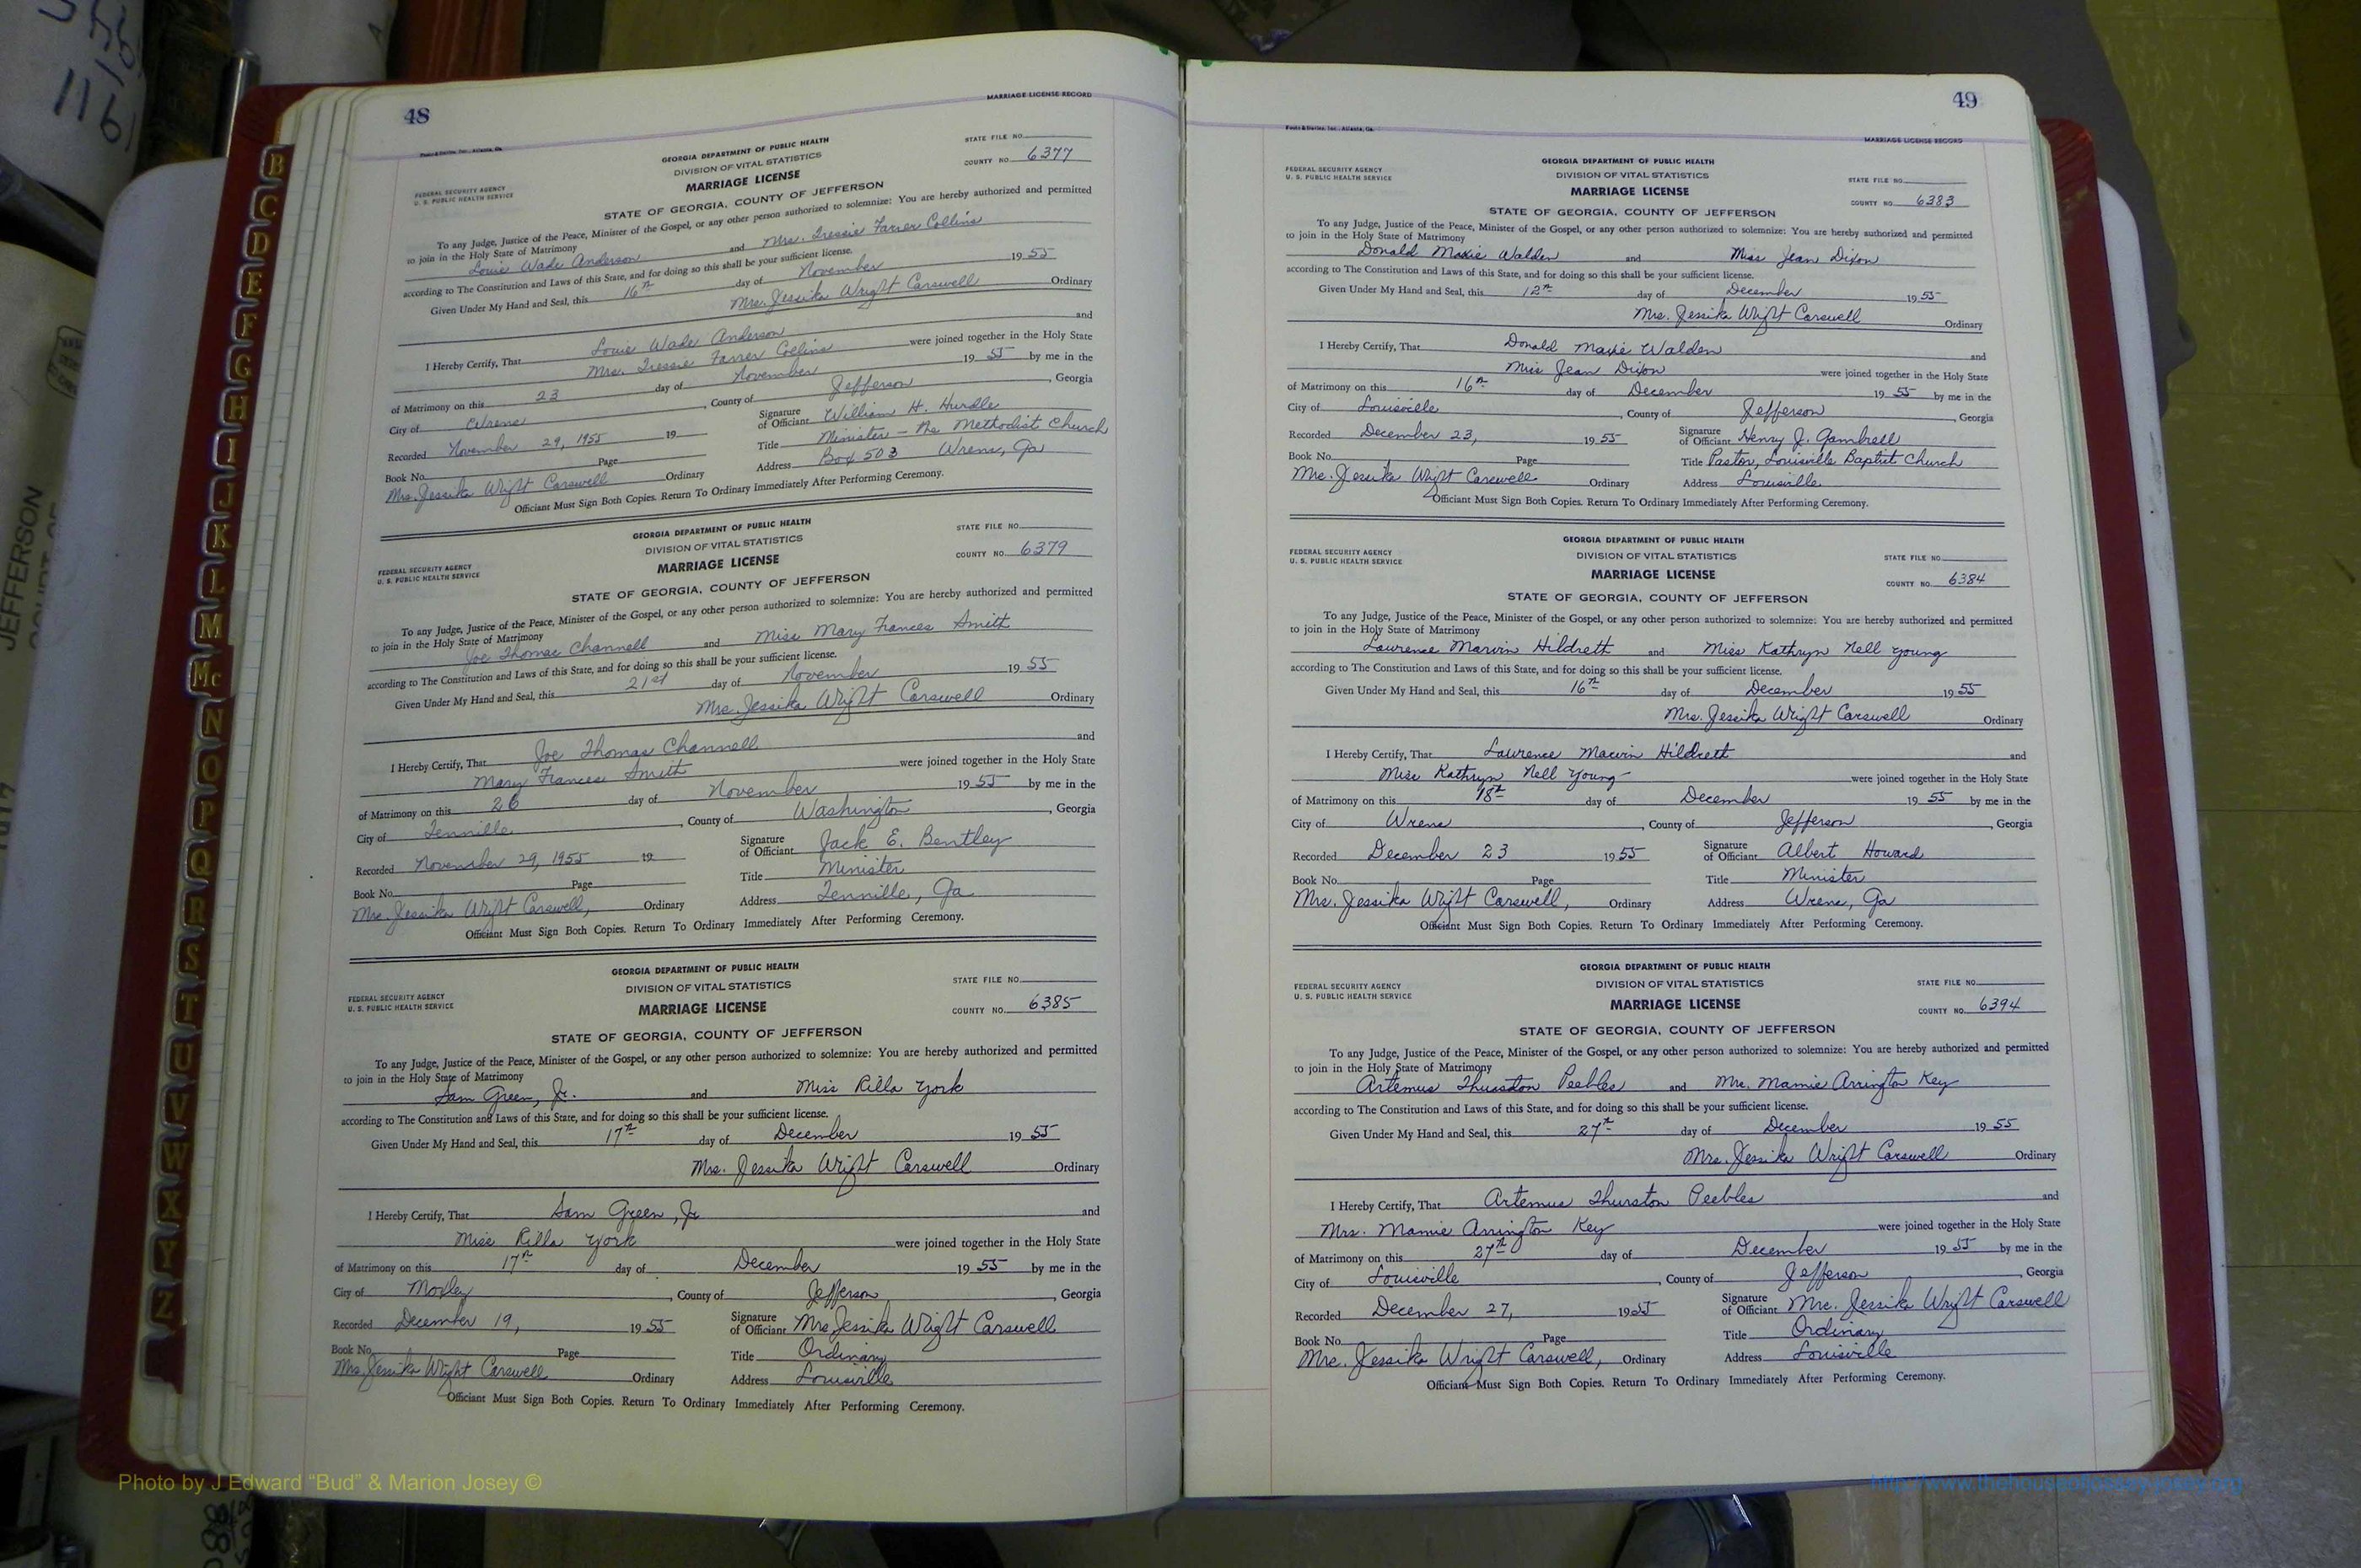 48
MARRIAGE LICENSE RECORD
Foote & Davies, Inc., Atlanta, Ga.
GEORGIA DEPARTMENT OF PUBLIC HEALTH
DIVISION OF VITAL STATISTICS
MARRIAGE LICENSE
STATE FILE NO.
COUNTY NO. 6377
FEDERAL SECURITY AGENCY
U. S. PUBLIC HEALTH SERVICE
STATE OF GEORGIA, COUNTY OF JEFFERSON
To any Judge, Justice of the Peace, Minister of the Gospel, or any other person authorized to solemnize: You are hereby authorized and permitted
to join in the Holy State of Matrimony
Louie Wade Anderson and Mrs. Tressie Farrer Collins
according to The Constitution and Laws of this State, and for doing so this shall be your sufficient license.
Given Under My Hand and Seal, this 16th day of November 1955
Mrs. Jessika Wright Carswell Ordinary
I Hereby Certify, That Louie Wade Anderson and
Mrs. Tressie Farrer Collins were joined together in the Holy State
of Matrimony on this 23 day of November 1955 by me in the
City of Wrens, County of Jefferson, Georgia
Recorded November 29, 1955 19 Signature of Officiant William H. Hurdle
Book No. Page Title Minister - the Methodist Church
Mrs. Jessika Wright Carswell Ordinary Address Box 503 Wrens, Ga
Officiant Must Sign Both Copies. Return To Ordinary Immediately After Performing Ceremony.
GEORGIA DEPARTMENT OF PUBLIC HEALTH
DIVISION OF VITAL STATISTICS
MARRIAGE LICENSE
STATE FILE NO.
COUNTY NO. 6379
FEDERAL SECURITY AGENCY
U. S. PUBLIC HEALTH SERVICE
STATE OF GEORGIA, COUNTY OF JEFFERSON
To any Judge, Justice of the Peace, Minister of the Gospel, or any other person authorized to solemnize: You are hereby authorized and permitted
to join in the Holy State of Matrimony
Joe Thomas Channell and Miss Mary Frances Smith
according to The Constitution and Laws of this State, and for doing so this shall be your sufficient license.
Given Under My Hand and Seal, this 21st day of November 1955
Mrs. Jessika Wright Carswell Ordinary
I Hereby Certify, That Joe Thomas Channell and
Mary Frances Smith were joined together in the Holy State
of Matrimony on this 26 day of November 1955 by me in the
City of Tennille, County of Washington, Georgia
Recorded November 29, 1955 19 Signature of Officiant Jack E. Bentley
Book No. Page Title Minister
Mrs. Jessika Wright Carswell, Ordinary Address Tennille, Ga
Officiant Must Sign Both Copies. Return To Ordinary Immediately After Performing Ceremony.
GEORGIA DEPARTMENT OF PUBLIC HEALTH
DIVISION OF VITAL STATISTICS
MARRIAGE LICENSE
STATE FILE NO.
COUNTY NO. 6385
FEDERAL SECURITY AGENCY
U. S. PUBLIC HEALTH SERVICE
STATE OF GEORGIA, COUNTY OF JEFFERSON
To any Judge, Justice of the Peace, Minister of the Gospel, or any other person authorized to solemnize: You are hereby authorized and permitted
to join in the Holy State of Matrimony
Sam Green, Jr. and Miss Rilla York
according to The Constitution and Laws of this State, and for doing so this shall be your sufficient license.
Given Under My Hand and Seal, this 17th day of December 1955
Mrs. Jessika Wright Carswell Ordinary
I Hereby Certify, That Sam Green, Jr and
Miss Rilla York were joined together in the Holy State
of Matrimony on this 17th day of December 1955 by me in the
City of Moxley, County of Jefferson, Georgia
Recorded December 19, 1955 Signature of Officiant Mrs Jessika Wright Carswell
Book No. Page Title Ordinary
Mrs. Jessika Wright Carswell Ordinary Address Louisville
Officiant Must Sign Both Copies. Return To Ordinary Immediately After Performing Ceremony.
49
MARRIAGE LICENSE RECORD
Foote & Davies, Inc., Atlanta, Ga.
GEORGIA DEPARTMENT OF PUBLIC HEALTH
DIVISION OF VITAL STATISTICS
MARRIAGE LICENSE
STATE FILE NO.
COUNTY NO. 6383
FEDERAL SECURITY AGENCY
U. S. PUBLIC HEALTH SERVICE
STATE OF GEORGIA, COUNTY OF JEFFERSON
To any Judge, Justice of the Peace, Minister of the Gospel, or any other person authorized to solemnize: You are hereby authorized and permitted
to join in the Holy State of Matrimony
Donald Maxie Walden and Miss Jean Dixon
according to The Constitution and Laws of this State, and for doing so this shall be your sufficient license.
Given Under My Hand and Seal, this 12th day of December 1955
Mrs. Jessika Wright Carswell Ordinary
I Hereby Certify, That Donald Maxie Walden and
Miss Jean Dixon were joined together in the Holy State
of Matrimony on this 16th day of December 1955 by me in the
City of Louisville, County of Jefferson, Georgia
Recorded December 23, 1955 Signature of Officiant Henry J. Gambrell
Book No. Page Title Pastor, Louisville Baptist Church
Mrs. Jessika Wright Carswell Ordinary Address Louisville
Officiant Must Sign Both Copies. Return To Ordinary Immediately After Performing Ceremony.
GEORGIA DEPARTMENT OF PUBLIC HEALTH
DIVISION OF VITAL STATISTICS
MARRIAGE LICENSE
STATE FILE NO.
COUNTY NO. 6384
FEDERAL SECURITY AGENCY
U. S. PUBLIC HEALTH SERVICE
STATE OF GEORGIA, COUNTY OF JEFFERSON
To any Judge, Justice of the Peace, Minister of the Gospel, or any other person authorized to solemnize: You are hereby authorized and permitted
to join in the Holy State of Matrimony
Lawrence Marvin Hildrett and Miss Kathryn Nell Young
according to The Constitution and Laws of this State, and for doing so this shall be your sufficient license.
Given Under My Hand and Seal, this 16th day of December 1955
Mrs. Jessika Wright Carswell Ordinary
I Hereby Certify, That Lawrence Marvin Hildreth and
Miss Kathryn Nell Young were joined together in the Holy State
of Matrimony on this 18th day of December 1955 by me in the
City of Wrens, County of Jefferson, Georgia
Recorded December 23 1955 Signature of Officiant Albert Howard
Book No. Page Title Minister
Mrs. Jessika Wright Carswell, Ordinary Address Wrens, Ga
Officiant Must Sign Both Copies. Return To Ordinary Immediately After Performing Ceremony.
GEORGIA DEPARTMENT OF PUBLIC HEALTH
DIVISION OF VITAL STATISTICS
MARRIAGE LICENSE
STATE FILE NO.
COUNTY NO. 6394
FEDERAL SECURITY AGENCY
U. S. PUBLIC HEALTH SERVICE
STATE OF GEORGIA, COUNTY OF JEFFERSON
To any Judge, Justice of the Peace, Minister of the Gospel, or any other person authorized to solemnize: You are hereby authorized and permitted
to join in the Holy State of Matrimony
Artemus Thurston Peebles and Mrs. Mamie Arrington Key
according to The Constitution and Laws of this State, and for doing so this shall be your sufficient license.
Given Under My Hand and Seal, this 27th day of December 1955
Mrs. Jessika Wright Carswell Ordinary
I Hereby Certify, That Artemus Thurston Peebles and
Mrs. Mamie Arrington Key were joined together in the Holy State
of Matrimony on this 27th day of December 1955 by me in the
City of Louisville, County of Jefferson, Georgia
Recorded December 27, 1955 Signature of Officiant Mrs. Jessika Wright Carswell
Book No. Page Title Ordinary
Mrs. Jessika Wright Carswell, Ordinary Address Louisville
Officiant Must Sign Both Copies. Return To Ordinary Immediately After Performing Ceremony.
B
C
D
E
F
G
H
I
J
K
L
M
Mc
N
O
P
Q
R
S
T
U
V
W
X
Y
Z
JEFFERSON
Photo by J Edward “Bud” & Marion Josey ©